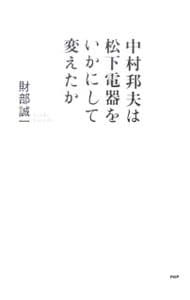 中村邦夫は
松下電器を
いかにして
変えたか
財部誠一
PHP